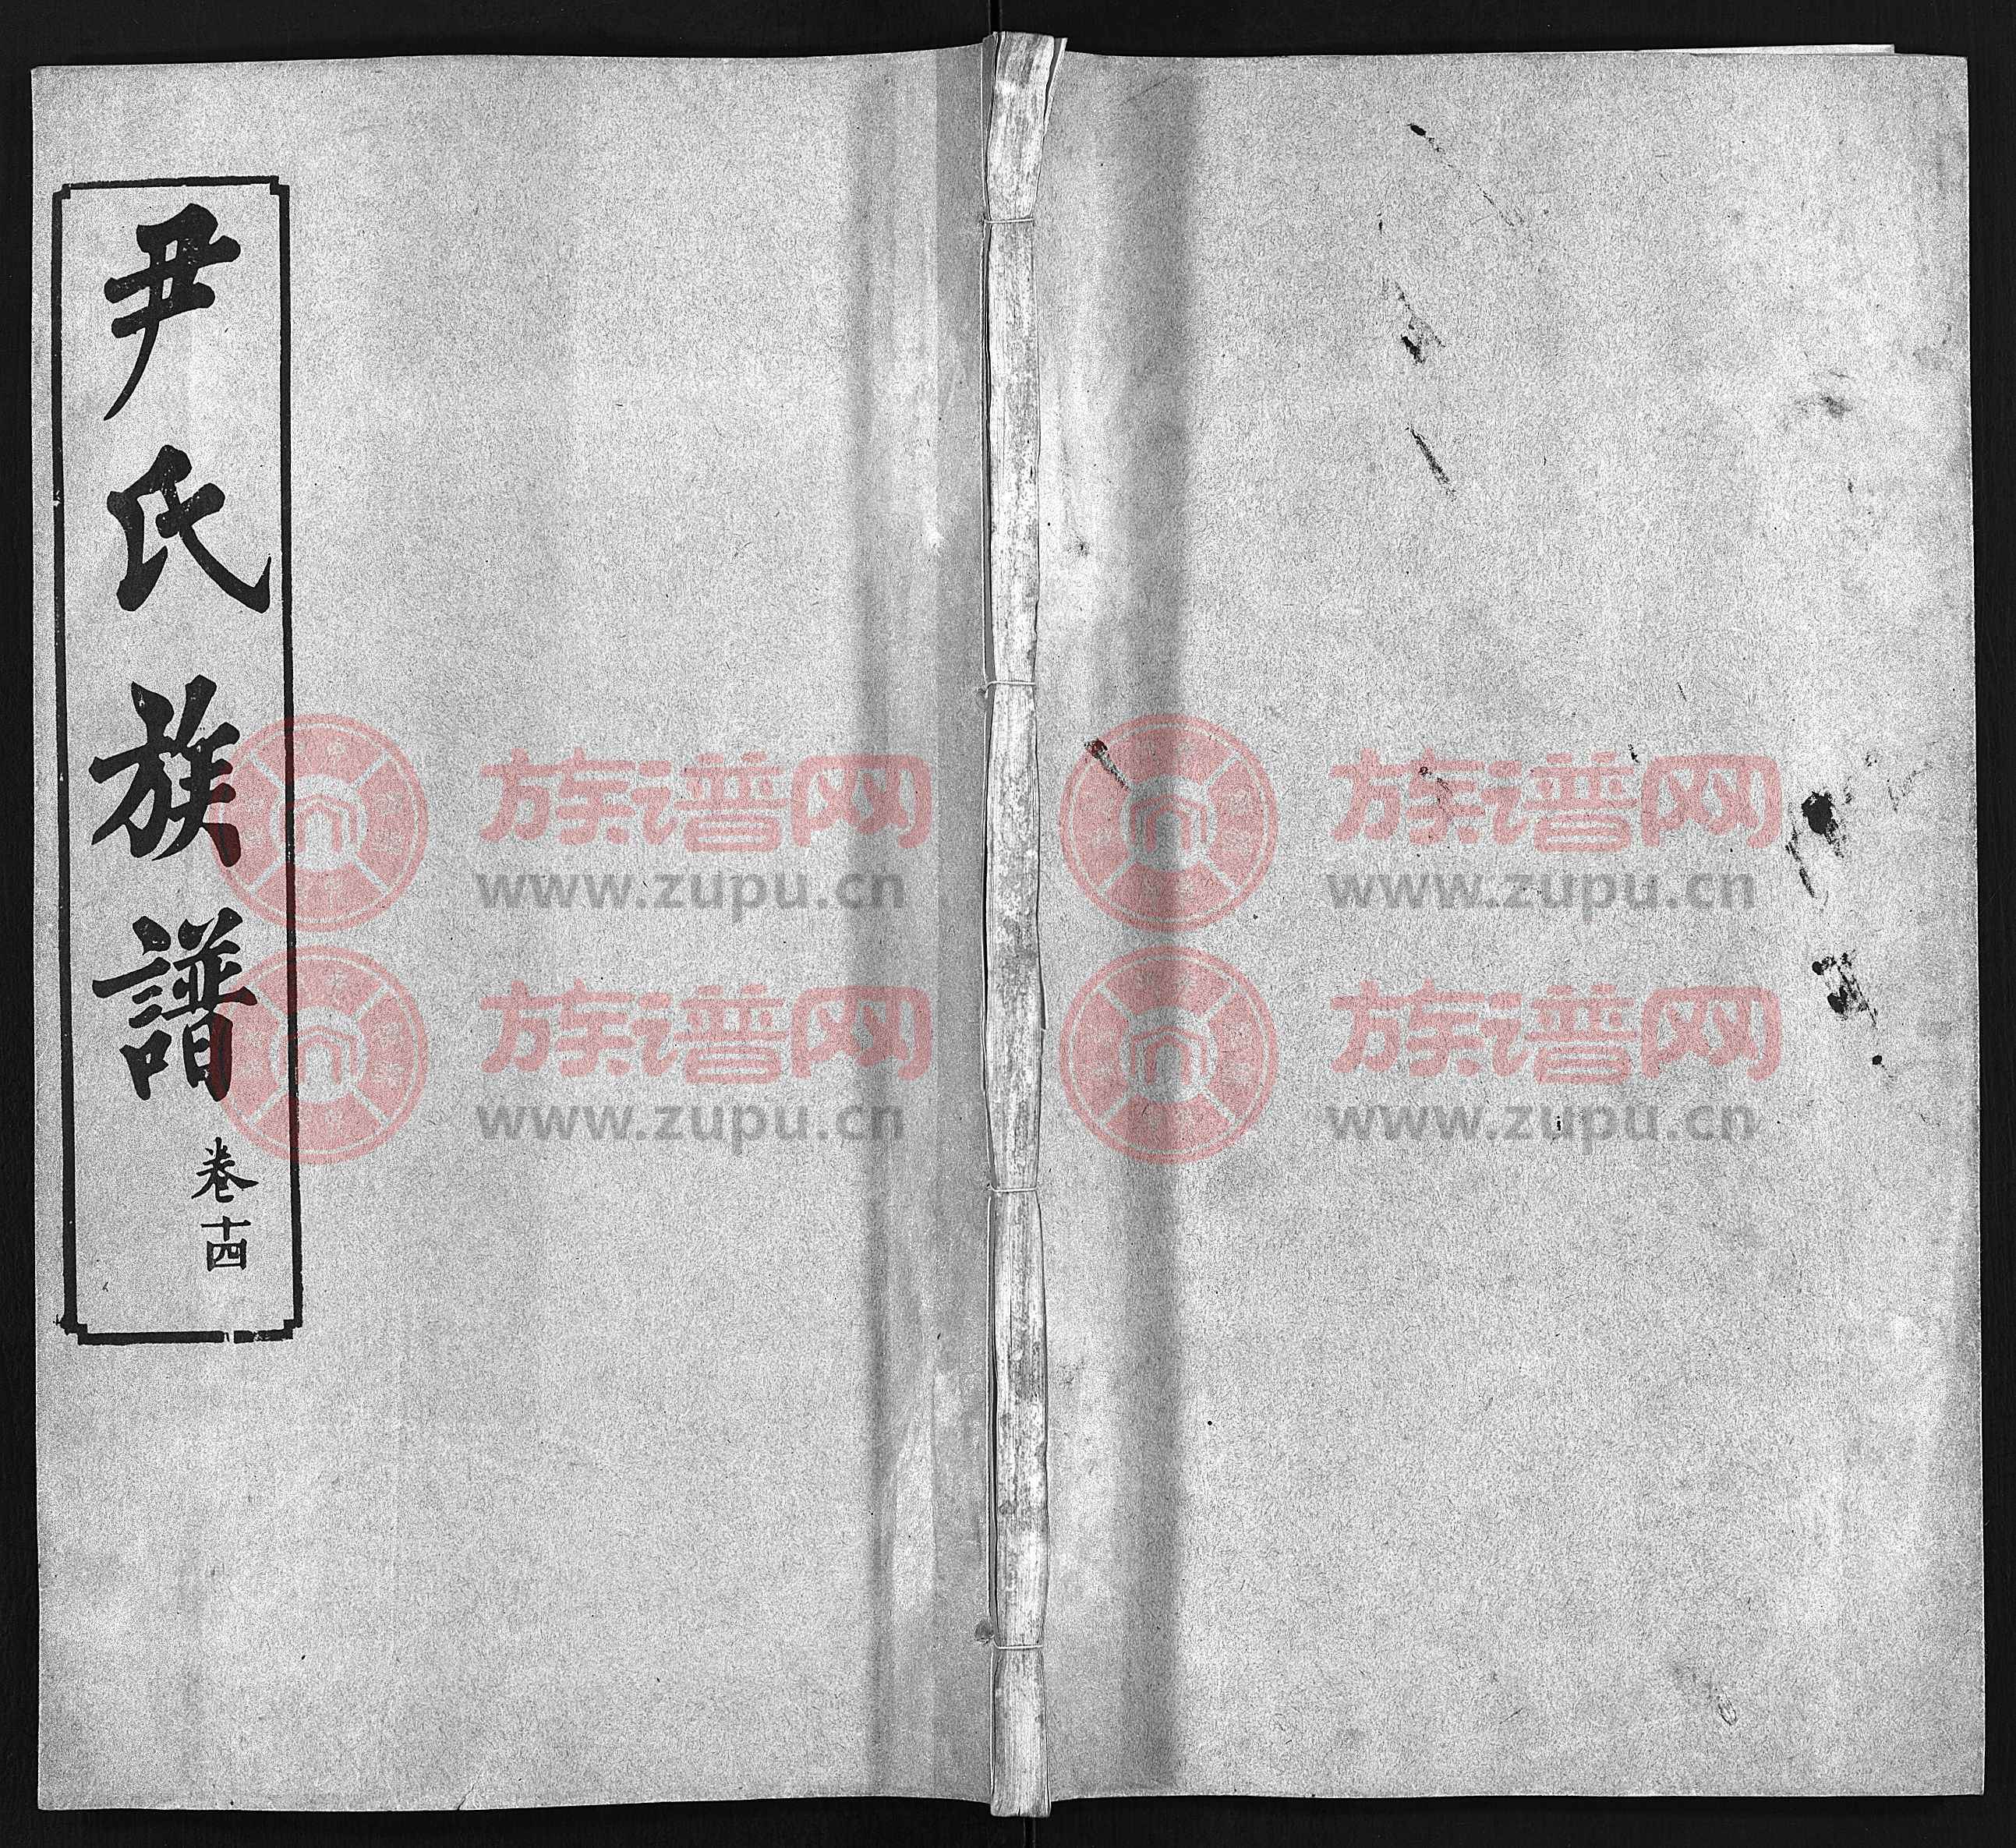 尹氏族譜
卷十四
族谱网
www.zupu.cn
族谱网
www.zupu.cn
族谱网
www.zupu.cn
族谱网
www.zupu.cn